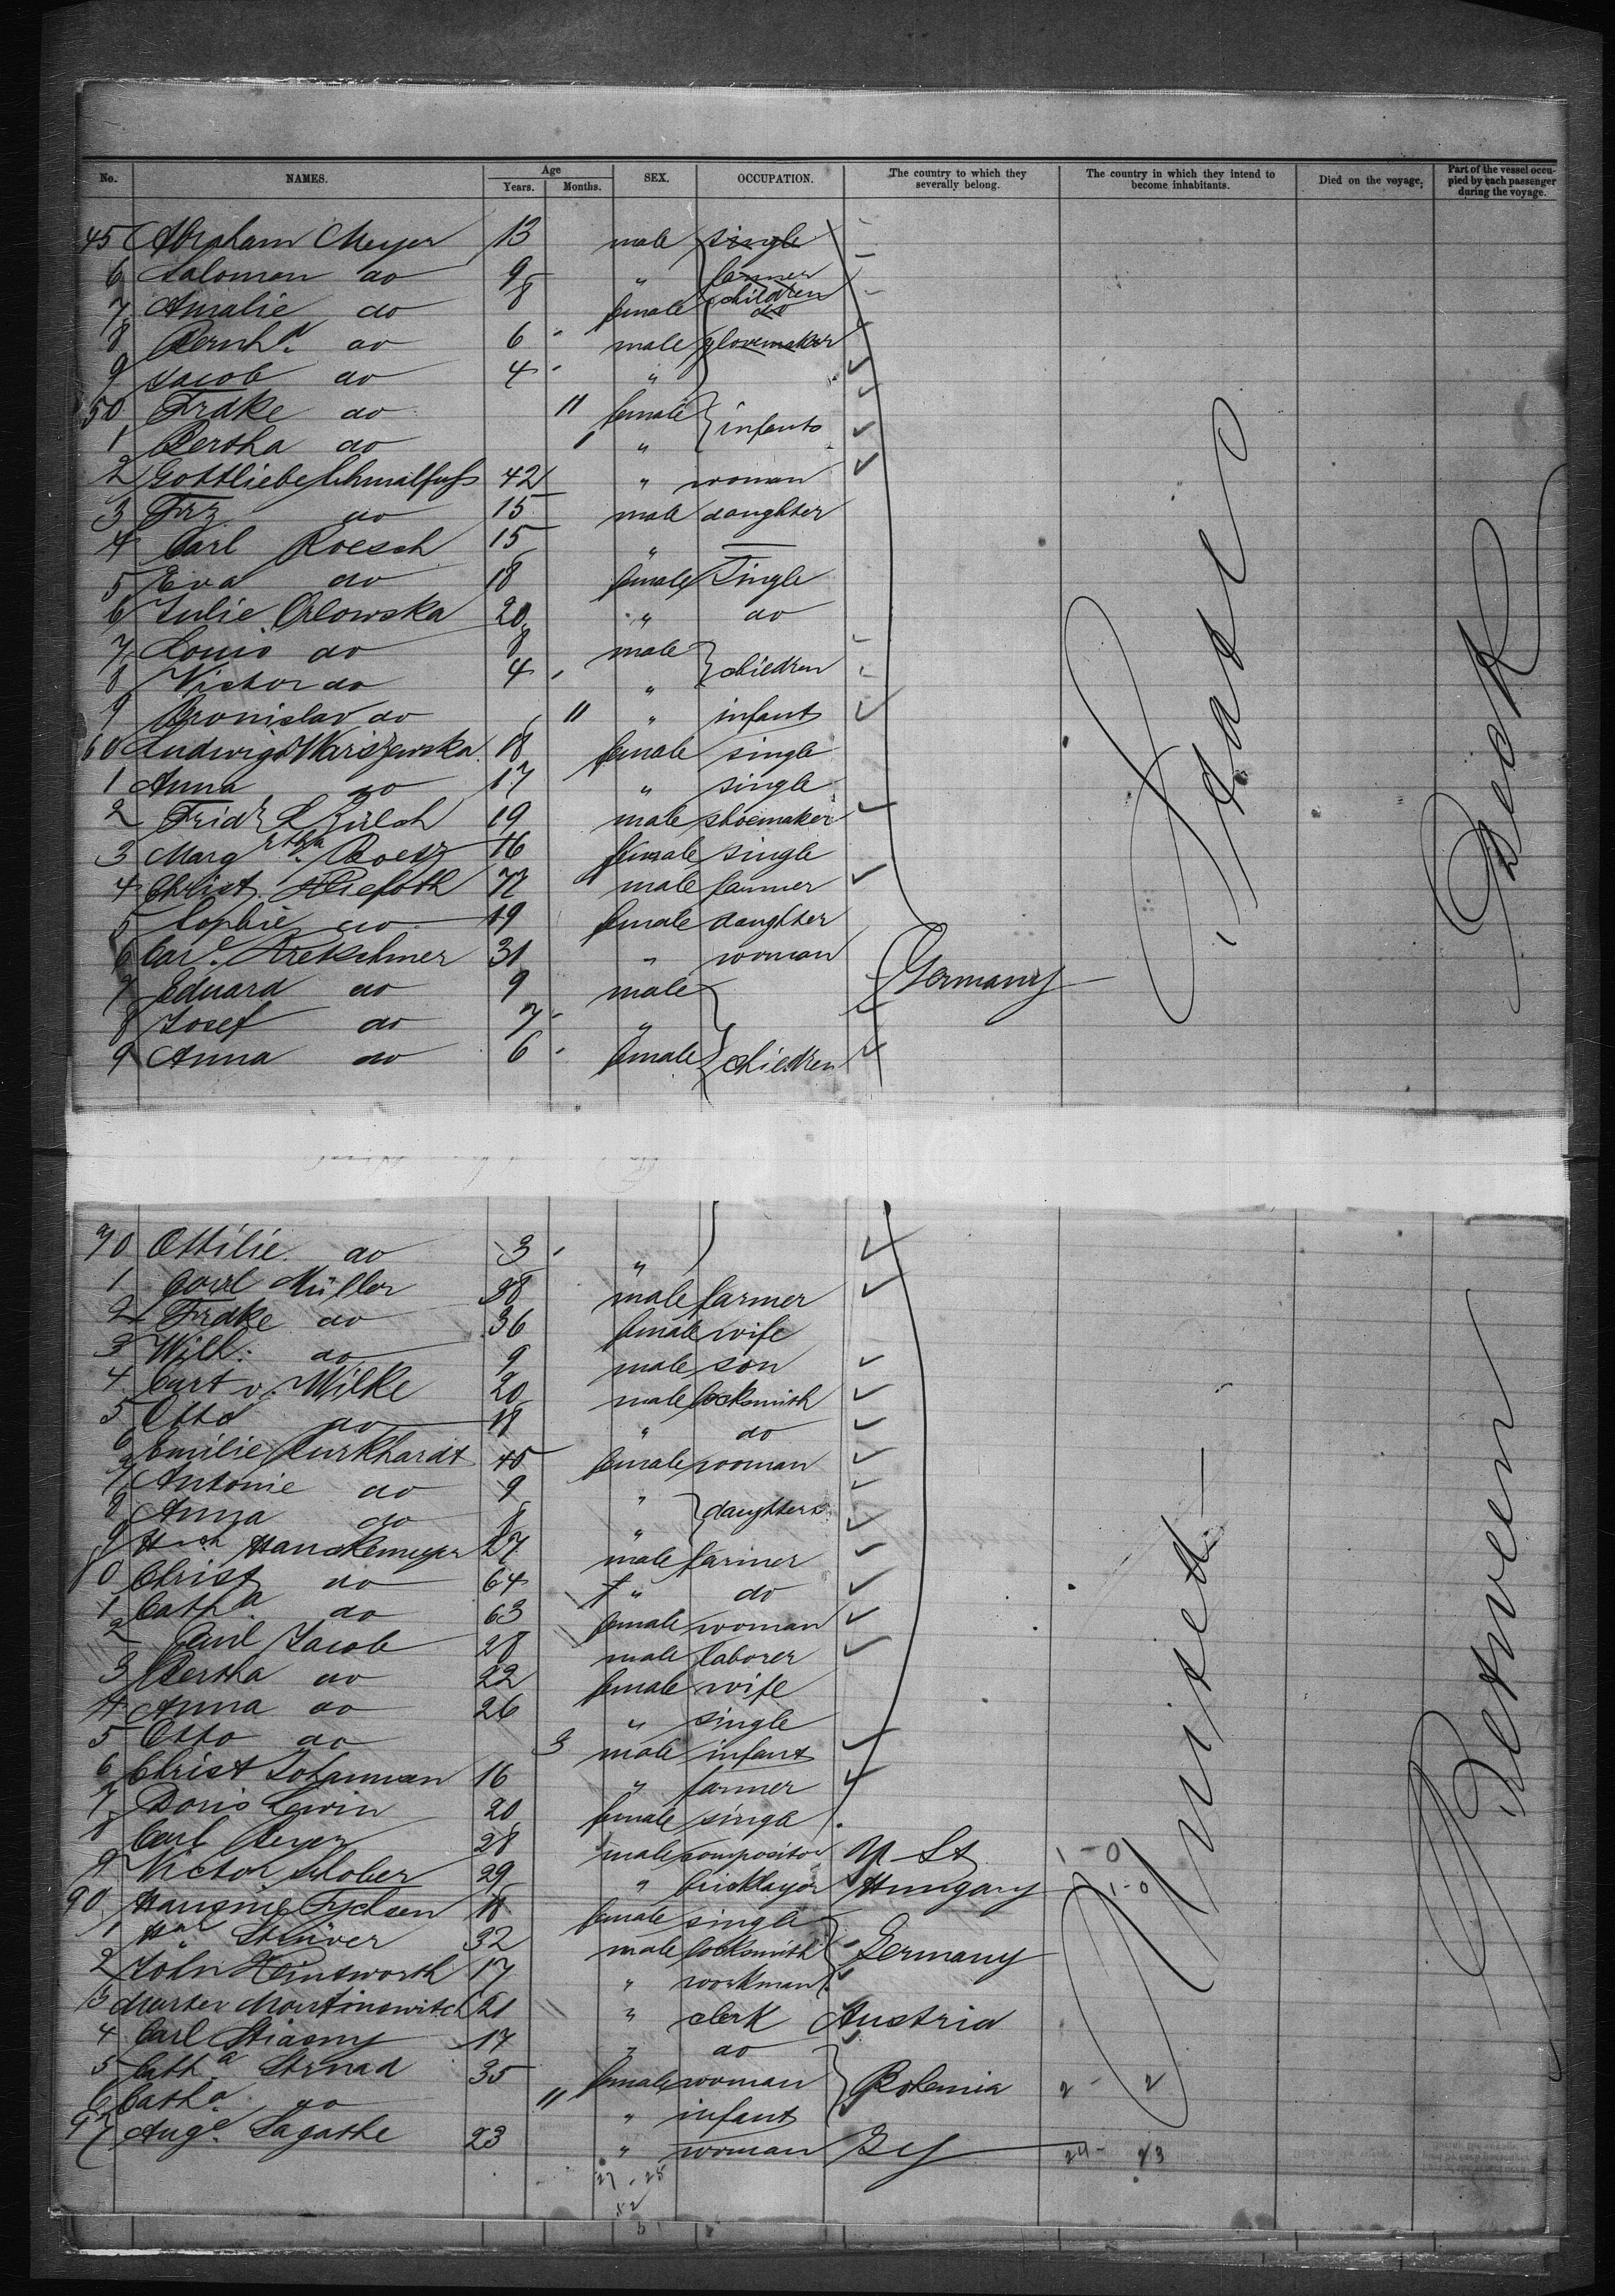 No. NAMES. Age Years. Months. SEX. OCCUPATION. The country to which they severally belong. The country in which they intend to become inhabitants. Died on the voyage. Part of the vessel occupied by each passenger during the voyage.
45 Abraham Meyer 13 male single
6 Salomon do 9 " farmer
7 Amalie do 8 female children do
8 Bernhd. do 6 male glovemaker
9 Jacob do 4 "
50 Frdke do 11 female infants
1 Bertha do 1 "
2 Gottliebe Schmalfuß 42 " woman
3 Frz do 15 male daughter
4 Carl Roesch 15 " —
5 Eva do 18 female Single
6 Julie Orlowska 20 " do
7 Louis do 8 male children
8 Victor do 4 "
9 Bronislav do 11 " infant
60 Ludwiga Wariszewska 18 female single
1 Anna do 17 " single
2 Fridr. L Zülch 19 male shoemaker
3 Margrtha. Boetz 16 female single
4 Christ. Kliefoth 77 male farmer
5 Sophie do 19 female daughter
6 Care. Kretschmer 31 " woman
7 Eduard do 9 male Germany
8 Josef do 7 "
9 Anna do 6 female children
States
Deck
70 Ottilie do 3 "
1 Carl Müller 38 male farmer
2 Frdke do 36 female wife
3 Will: do 9 male son
4 Curt v. Wilke 20 male locksmith
5 Otto do 18 " do
6 Emilie Burkhardt 45 female woman
7 Antonie do 9 " daughters
8 Anna do 8 "
9 Hch Hanckemeyer 27 male farmer
80 Christ do 64 " do
1 Catha do 63 female woman
2 Carl Jacob 28 male laborer
3 Bertha do 22 female wife
4 Anna do 26 " single
5 Otto do 3 male infant
6 Christ Johannsen 16 " farmer
7 Doris Lewin 20 female singa
8 Carl Beyer 28 male compositor U St 1 - 0
9 Victor Schober 29 " bricklayer Hungary 1 - 0
90 Hansine Tychsen 18 female single
1 Stüver 32 male locksmith Germany
2 John Heinsworth 17 " workman
3 Martinowitch 21 " clerk Austria
4 Carl Stiasny 17 " do
5 Catha. Strnad 35 female woman Bohemia 2 - 2
6 Catha. do 11 " infant
97 Auge. Lagathe 23 " woman Gy 24 - 23
United
Between
27 - 25
52